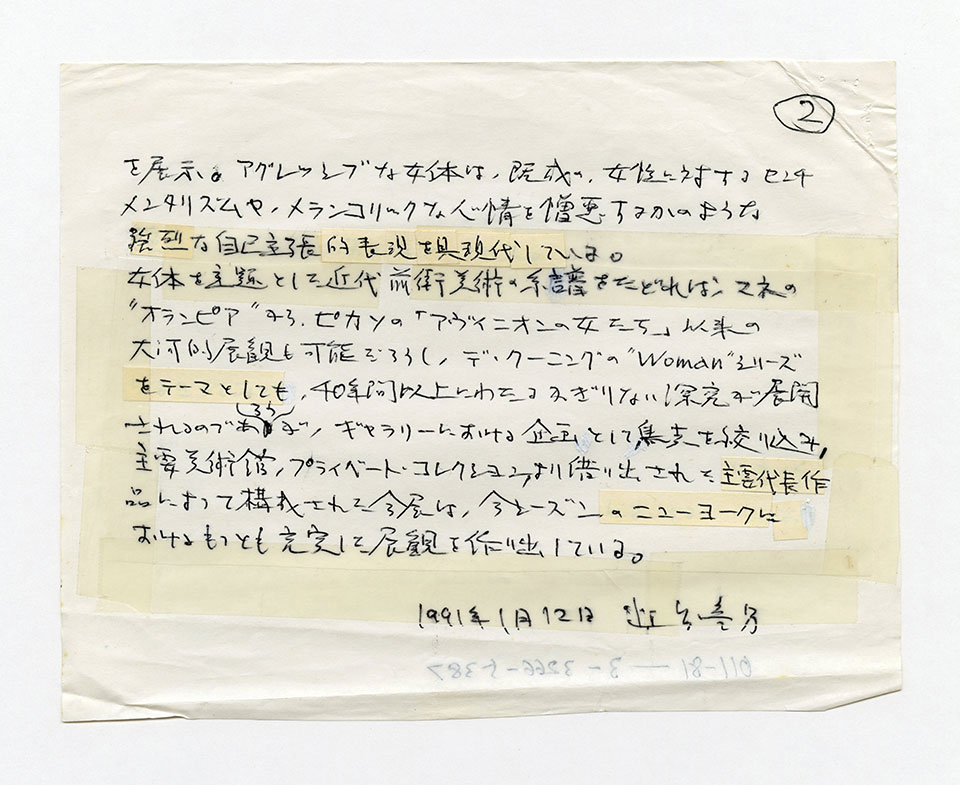 ②
を展示。アグレッシブな女体は、既成の、女性に対するセンチ
メンタリズムや、メランコリックな人情を憎悪するかのような
強烈な自己主張的表現を具現代している。
女体を主題とした近代前衛美術の系譜をたどれば、マネの
"オランピア"から、ピカソの「アヴィニオンの女たち」以来の
大河的展観も可能だろうし、デ・クーニングの"Woman"シリーズ
をテーマとしても、40年間以上にわたるかぎりない深究が展開
されるのであろうが、ギャラリーにおける企画として焦点を絞り込み、
主要美術館、プライベート・コレクションより借り出された主要代表作
品によって構成された今展は、今シーズンのニューヨークに
おけるもっとも充実した展観を作り出している。
1991年1月12日 近藤竜男
011-81-3-3266-5387